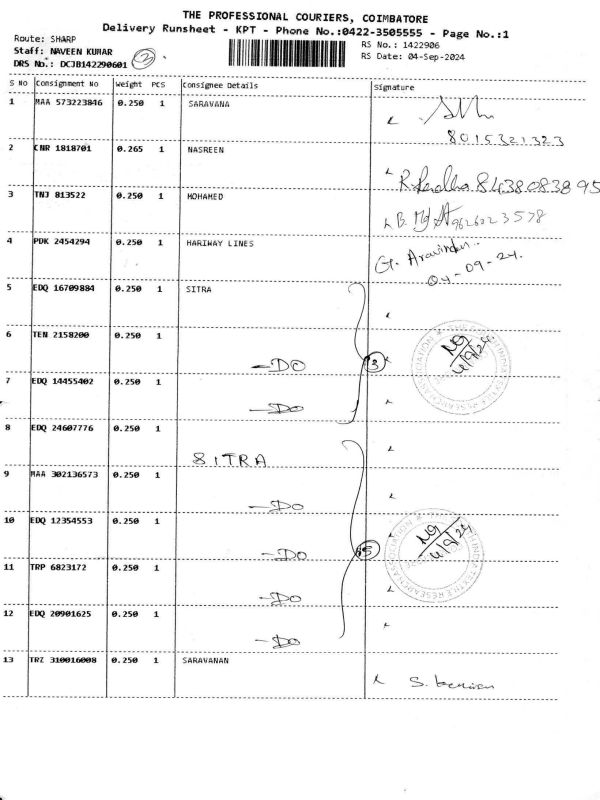 THE PROFESSIONAL COURIERS, COIMBATORE
Delivery Runsheet - KPT - Phone No.:0422-3505555 - Page No.:1
Route: SHARP
RS No.: 1422906
Staff: NAVEEN KUMAR
RS Date: 04-Sep-2024
DRS No.: DCJB142290601 3
S NO Consignment No Weight PCS Consignee Details Signature
1 MAA 573223846 0.250 1 SARAVANA
8015321323
2 CNR 1818701 0.265 1 NASREEN
8438083895
3 TNJ 813522 0.250 1 MOHAMED
4 PDK 2454294 0.250 1 HARIWAY LINES G. Aravindan
04-09-24.
5 EDQ 16709884 0.250 1 SITRA
6 TEN 2158200 0.250 1
-DO 3
7 EDQ 14455402 0.250 1
-DO
8 EDQ 24607776 0.250 1
SITRA
9 MAA 302136573 0.250 1
-DO
10 EDQ 12354553 0.250 1
-DO 5
11 TRP 6823172 0.250 1
-DO
12 EDQ 20901625 0.250 1
-DO
13 TRZ 310016008 0.250 1 SARAVANAN